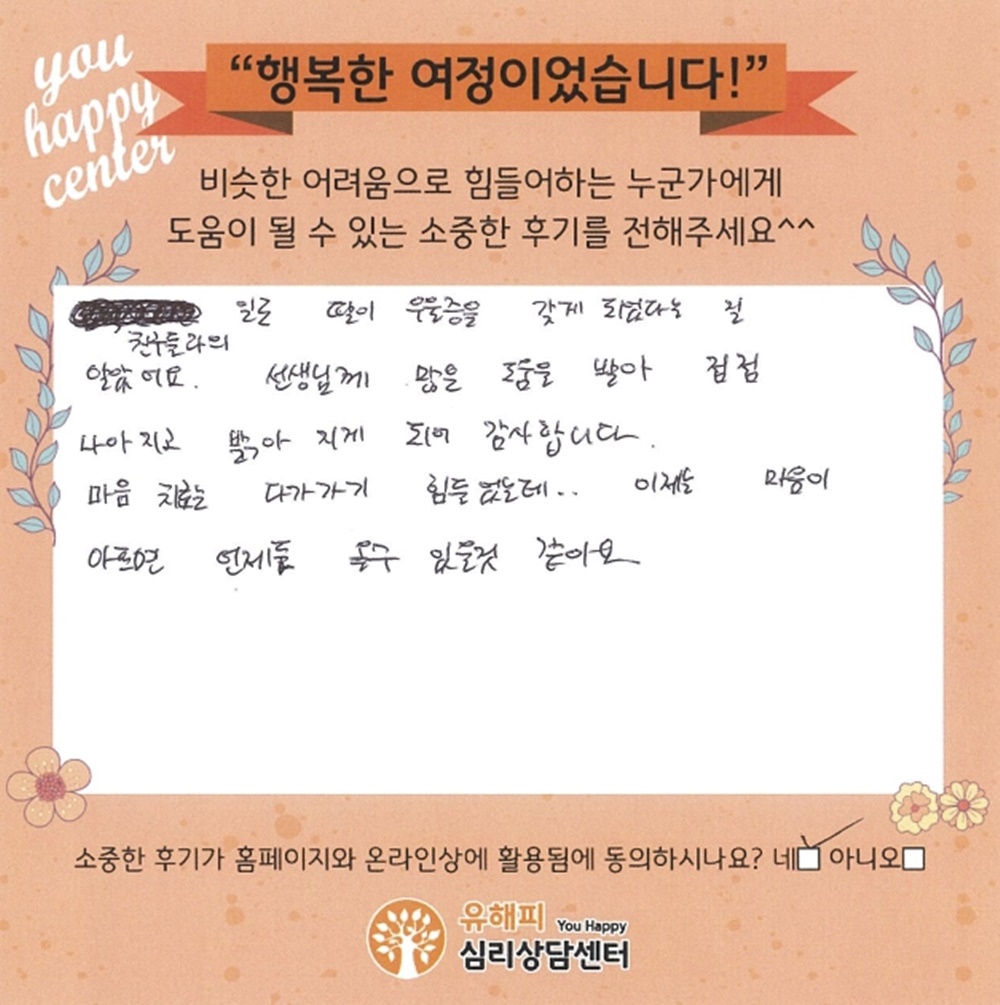 you
happy
center
“행복한 여정이었습니다!”
비슷한 어려움으로 힘들어하는 누군가에게
도움이 될 수 있는 소중한 후기를 전해주세요^^
일로 딸이 우울증을 갖게 되었다는 걸
친구들과의
알았어요. 선생님께 많은 도움을 받아 점점
나아지고 밝아지게 되어 감사합니다.
마음 치료는 다가가기 힘들었는데.. 이제는 마음이
아프면 언제든 올수 있을것 같아요
소중한 후기가 홈페이지와 온라인상에 활용됨에 동의하시나요? 네 아니오
유해피 You Happy
심리상담센터